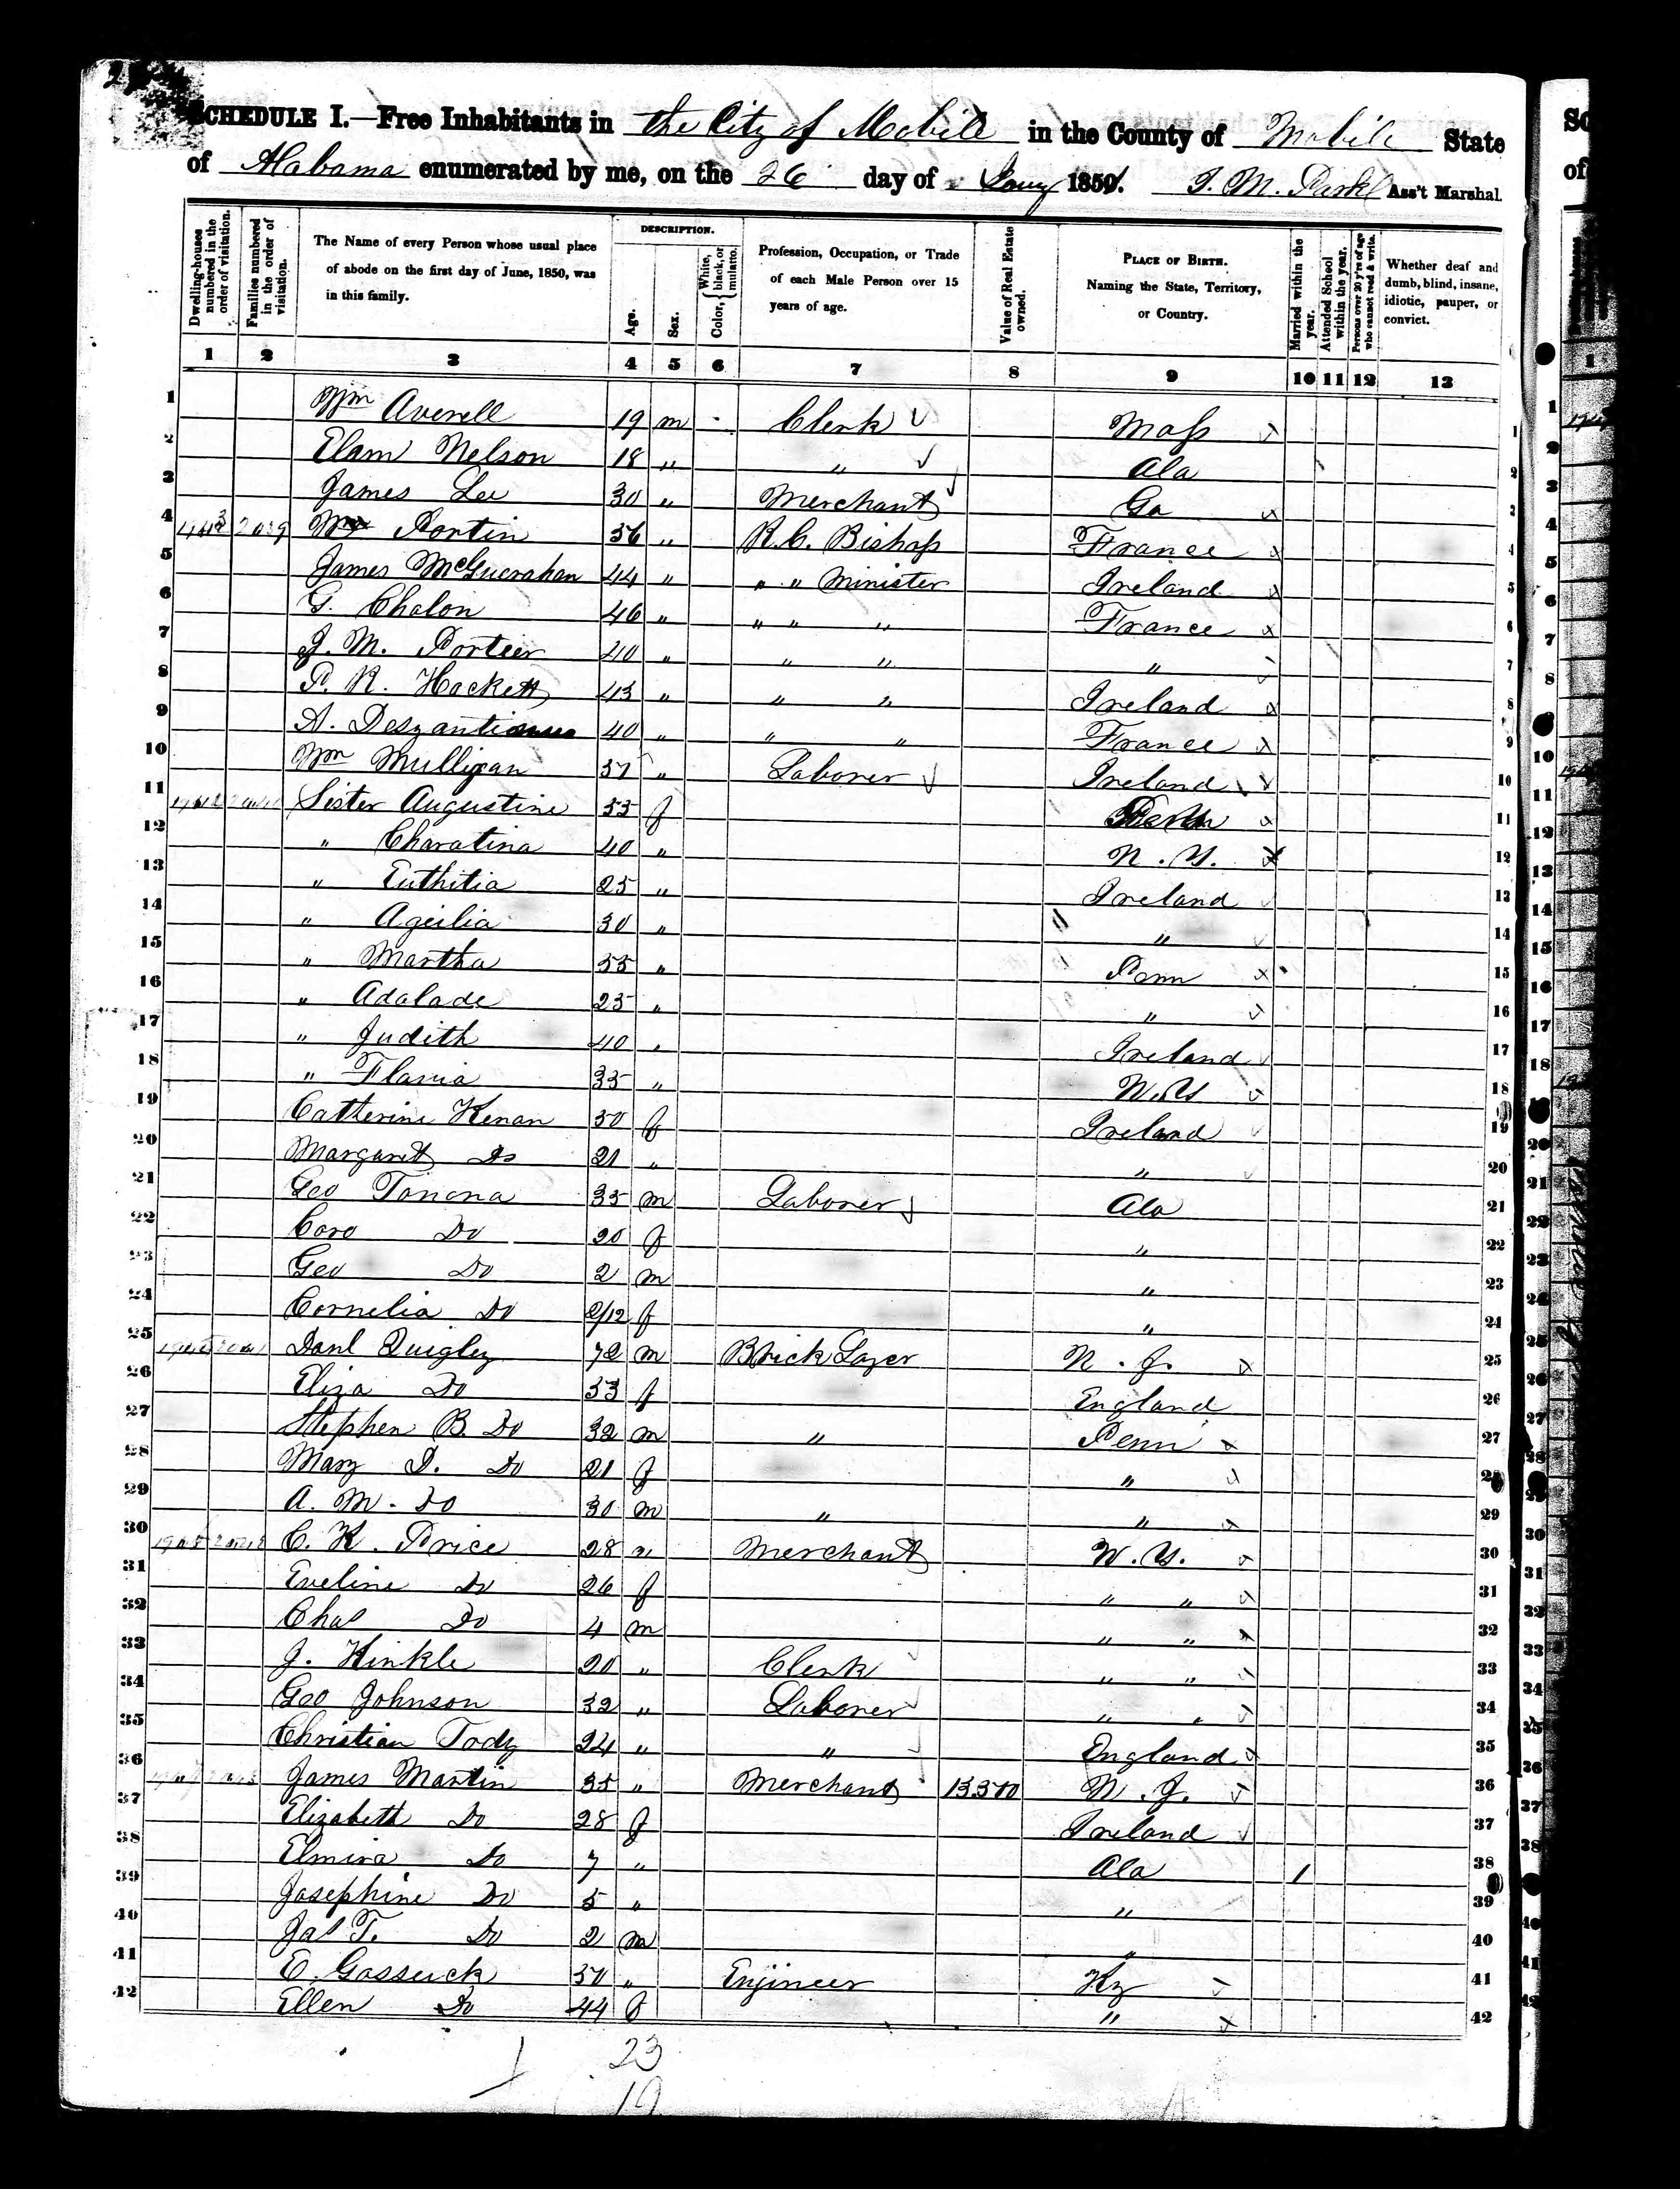 SCHEDULE I.—Free Inhabitants in the City of Mobile in the County of Mobile State
of Alabama enumerated by me, on the 26 day of Jany 1851. Ass't Marshal.
Dwelling-houses numbered in the order of visitation.
Families numbered in the order of visitation.
The Name of every Person whose usual place of abode on the first day of June, 1850, was in this family.
DESCRIPTION.
Age.
Sex.
Color, { White, black, or mulatto.
Profession, Occupation, or Trade of each Male Person over 15 years of age.
Value of Real Estate owned.
PLACE OF BIRTH. Naming the State, Territory, or Country.
Married within the year.
Attended School within the year.
Persons over 20 y'rs of age who cannot read & write.
Whether deaf and dumb, blind, insane, idiotic, pauper, or convict.
1 2 3 4 5 6 7 8 9 10 11 12 13
1 Wm Averell 19 m Clerk Mass 1
2 Elam Nelson 18 " " Ala 2
3 James Lee 30 " Merchant Ga 3
4 Portin 56 " R. C. Bishop France 4
5 James McGuerahan 44 " " " Minister Ireland 5
6 G. Chalon 46 " " " " France 6
7 J. M. Portier 40 " " " " 7
8 P. R. Hackett 43 " " " Ireland 8
9 A. 40 " " " France 9
10 Wm Mulligan 37 " Laborer Ireland 10
11 Sister Augustine 55 f 11
12 " Charatina 40 " N. Y. 12
13 " Euthitia 25 " Ireland 13
14 " Ageilia 30 " " 14
15 " Martha 55 " Penn 15
16 " Adalade 25 " " 16
17 " Judith 40 " Ireland 17
18 " Flavia 35 " N. Y 18
19 Catherine Kenan 50 f Ireland 19
20 Margaret Do 21 " " 20
21 Geo Tonona 35 m Laborer Ala 21
22 Caro Do 20 f " 22
23 Geo Do 2 m " 23
24 Cornelia Do 2/12 f " 24
25 Danl Quigley 72 m Brick Layer N. J. 25
26 Eliza Do 33 f England 26
27 Stephen B. Do 32 m " Penn 27
28 Mary D. Do 21 f " 28
29 A. M. Do 30 m " " 29
30 C. K. Price 28 " Merchant N. Y. 30
31 Eveline Do 26 f " " 31
32 Chas Do 4 m " " 32
33 J. Hinkle 20 " Clerk " " 33
34 Geo Johnson 32 " Laborer " " 34
35 Christian Tody 24 " " England 35
36 James Martin 35 " Merchant 13300 N. J. 36
37 Elizabeth Do 28 f Ireland 37
38 Elmira Do 7 " Ala 1 38
39 Josephine Do 5 " " 39
40 Jas T. Do 2 m " 40
41 E. Gosseuck 50 " Enjineer Ky 41
42 Ellen Do 44 f " 42
23
19